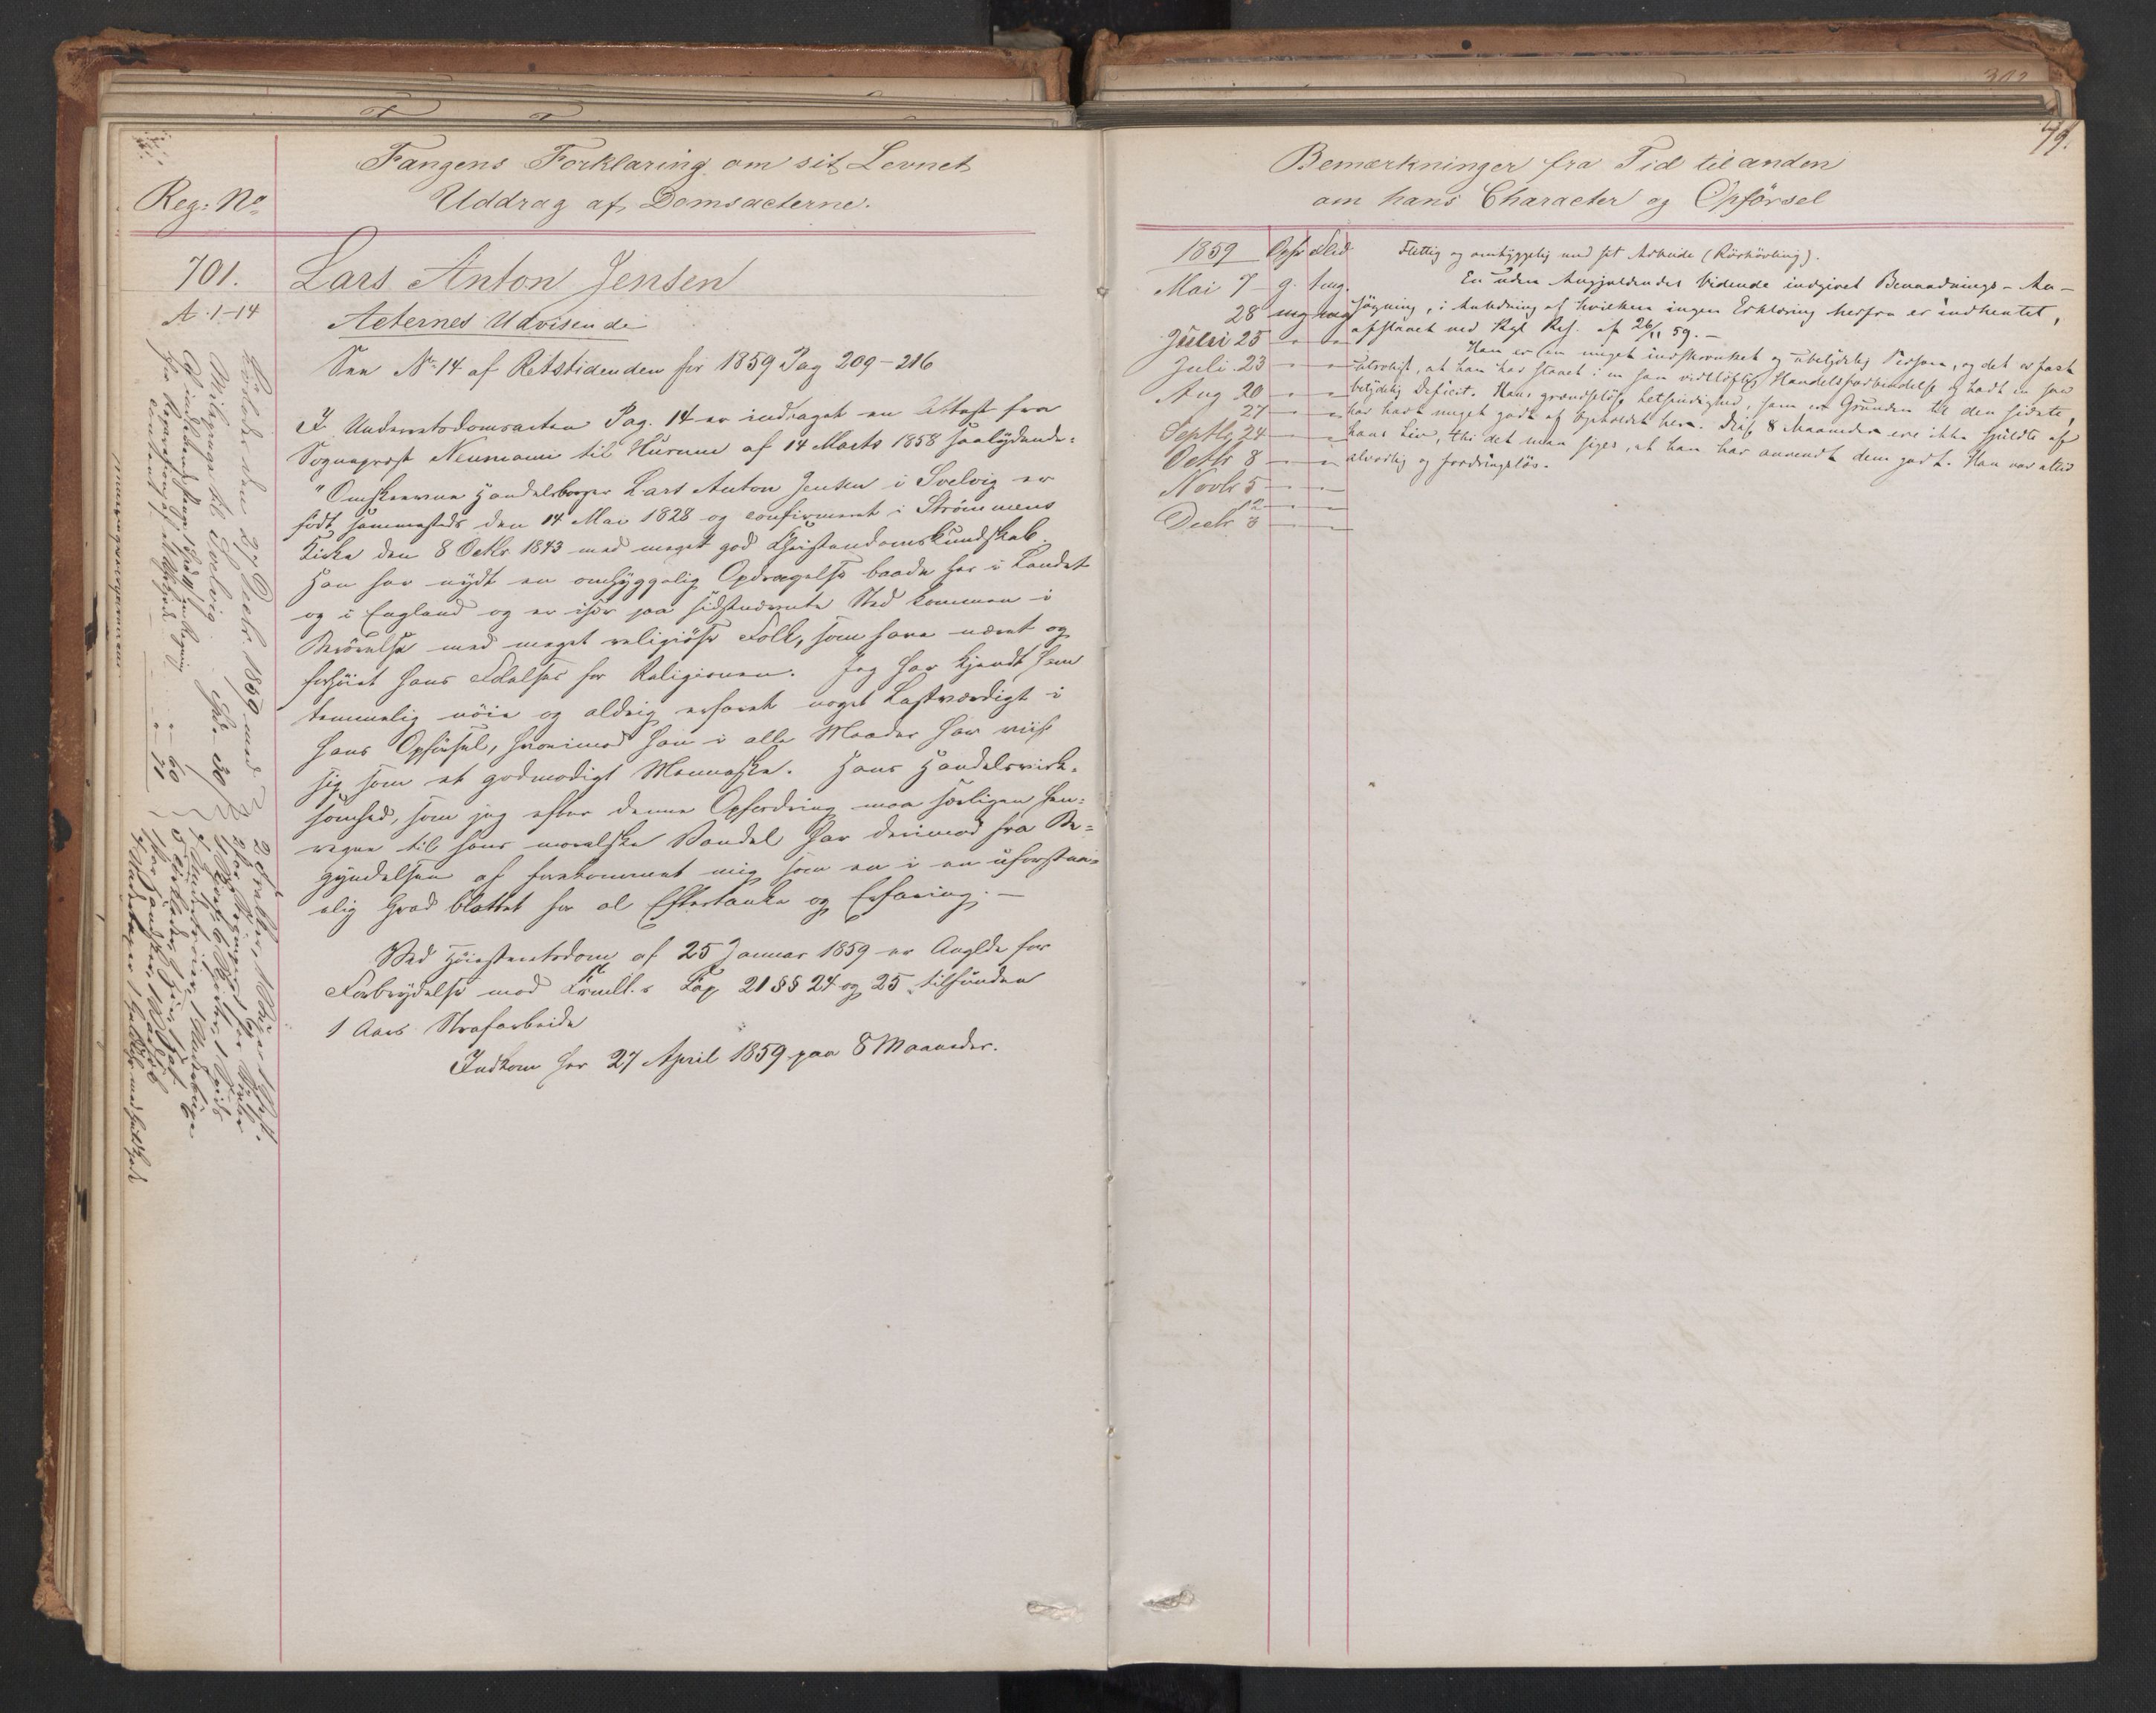 Fangens Forklaring om sit Levnet
Reg: No Uddrag af Domsacterne.
701. Lars Anton Jensen
A. 1-14 Acternes Udvisende
See No 14 af Retstidenden for 1859 Pag 209-216
I Underretsdomsacten Pag. 14 er indtaget en Attest fra
Sogneprest Neumann til Hurum af 14 Marts 1858 saalydende:
"Omskrevne Handelsborger Lars Anton Jensen i Svelvig er
født sammesteds den 14 Mai 1828 og confirmeret i Strømmens
Kirke den 8 Octbr 1843 med meget god Christendomskundskab.
Han har nydt en omhyggelig Opdragelse baade her i Landet
og i England og er især paa sidstnævnte Sted kommen i
Berørelse med meget religiöse Folk, som have næret og
forhöiet hans Følelser for Religionen. Jeg har kjendt ham
temmelig nöie og aldrig erfaret noget Lastværdigt i
hans Opförsel, hvorimod han i alle Maader har viist
sig som et godmodigt Menneske. Hans Handelsvirk-
somhed, som jeg efter denne Opfordring maa særligen hen-
regne til hans moralske Vandel har derimod fra Be-
gyndelsen af forekommet mig som en i en uforstaae-
elig Grad blottet for al Eftertanke og Erfaring. —
Ved Höiesteretsdom af 25 Januar 1859 er Anglde for
Forbrydelse mod Crmll.s Cap 21 §§ 24 og 25 tilfunden
1 Aars Strafarbeide
Indkom her 27 April 1859 paa 8 Maaneder.
Herfra den 27 Decbr. 1859 med
Milepenge til Svelvig
49.
Bemærkninger fra Tid til anden
om hans Character og Opförsel
1859 Opf Flid
Mai 7 g. tmg.
28 mg mg
Juni 25 " "
Juli 23 " "
Aug 20 " "
27 " "
Septbr 24 " "
Octbr 8 " "
Novbr 5 " "
12 " "
Decbr 3 " "
Flittig og omhyggelig med sit Arbeide (Rörhövling).
En uden Angjeldendes Vidende indgivet Benaadnings-An-
søgning, i Anledning af hvilken ingen Erklæring herfra er indhentet,
afslaaet ved Kgl Res. af 26/11 59. —
Han er en meget indskrænket og ubetydelig Person, og det er fast
utroligt, at han har staaet i en saa vidtløftig Handelsforbindelse og havt en saa
betydelig Deficit. Hans grændseløse Letsindighed, som er Grunden til den sidste,
har havt meget godt af Opholdet her. Disse 8 Maaneder ere ikke spildte af
hans Liv, thi det maa siges, at han har anvendt dem godt. Han var altid
alvorlig og fordringsløs.